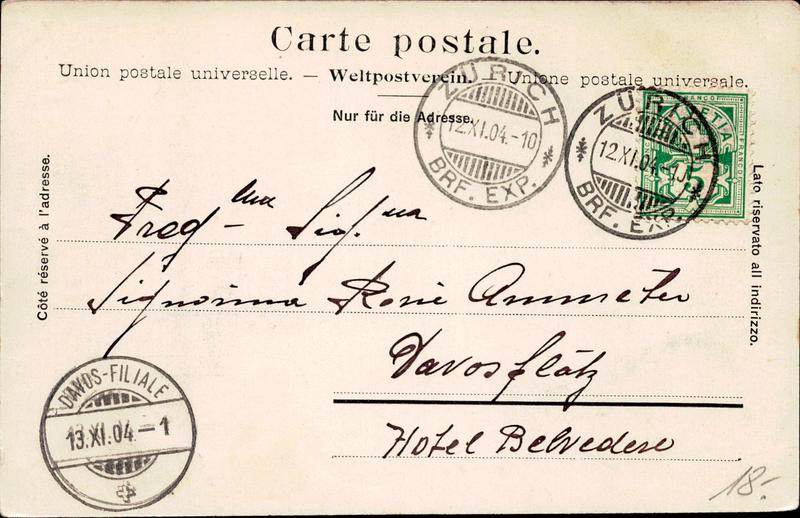 Carte postale.
Union postale universelle. — Weltpostverein. — Unione postale universale.
Nur für die Adresse.
ZÜRICH
12.XI.04.-10
BRF. EXP.
ZÜRICH
12.XI.04.-10
BRF. EXP.
HELVETIA
FRANCO
FRANCO
5
Côté réservé à l'adresse.
Lato riservato all indirizzo.
Preg-ma Sig.na
Signorina Rosie Ammeter
Davosplatz
Hotel Belvedere
DAVOS-FILIALE
13.XI.04.-1
18.-